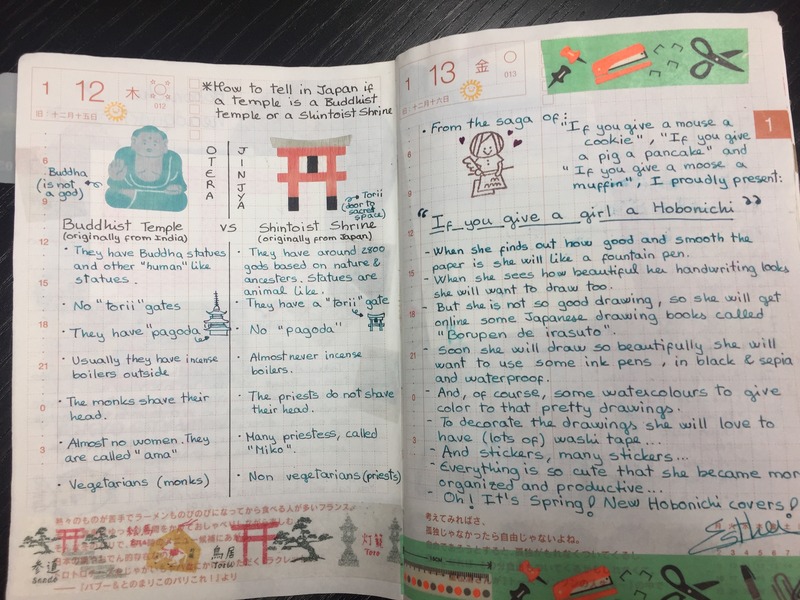 1 12 木
012
旧:十二月十五日
*How to tell in Japan if
a temple is a Buddhist
temple or a Shintoist Shrine
Buddha
(is not
a god)
OTERA
JINJYA
Torii
door to
sacred
space)
Buddhist Temple
(originally from India)
VS
Shintoist Shrine
(originally from Japan)
6
9
12
15
18
21
0
3
· They have Buddha statues
and other "human" like
statues.
· No "torii" gates
· They have "pagoda"
· Usually they have incense
boilers outside
· The monks shave their
head.
· Almost no women. They
are called "ama"
· Vegetarians (monks)
· They have around 2800
gods based on nature &
ancesters. Statues are
animal like.
· They have a "torii" gate
· No "pagoda"
· Almost never incense
boilers.
· The priests do not shave
their head.
· Many priestess, called
"Miko".
· Non vegetarians (priests)
参道
Sando
絵馬
鳥居
Torii
灯篭
Toro
1 13 金
013
旧:十二月十六日
1
· From the saga of:
"If you give a mouse a
cookie", "If you give
a pig a pancake" and
"If you give a moose a
muffin", I proudly present:
"If you give a girl a Hobonichi"
6
9
12
15
18
21
0
3
- When she finds out how good and smooth the
paper is she will like a fountain pen.
- When she sees how beautiful her handwriting looks
she will want to draw too.
- But she is not so good drawing, so she will get
online some Japanese drawing books called
"Borupen de irasuto".
- Soon she will draw so beautifully she will
want to use some ink pens, in black & sepia
and waterproof.
- And, of course, some watercolours to give
color to that pretty drawings.
- To decorate the drawings she will love to
have (lots of) washi tape...
- And stickers, many stickers...
- Everything is so cute that she became mor
organized and productive...
- Oh! It's Spring! New Hobonichi covers!
考えてみればさ、
孤独じゃなかったら自由じゃないよね。